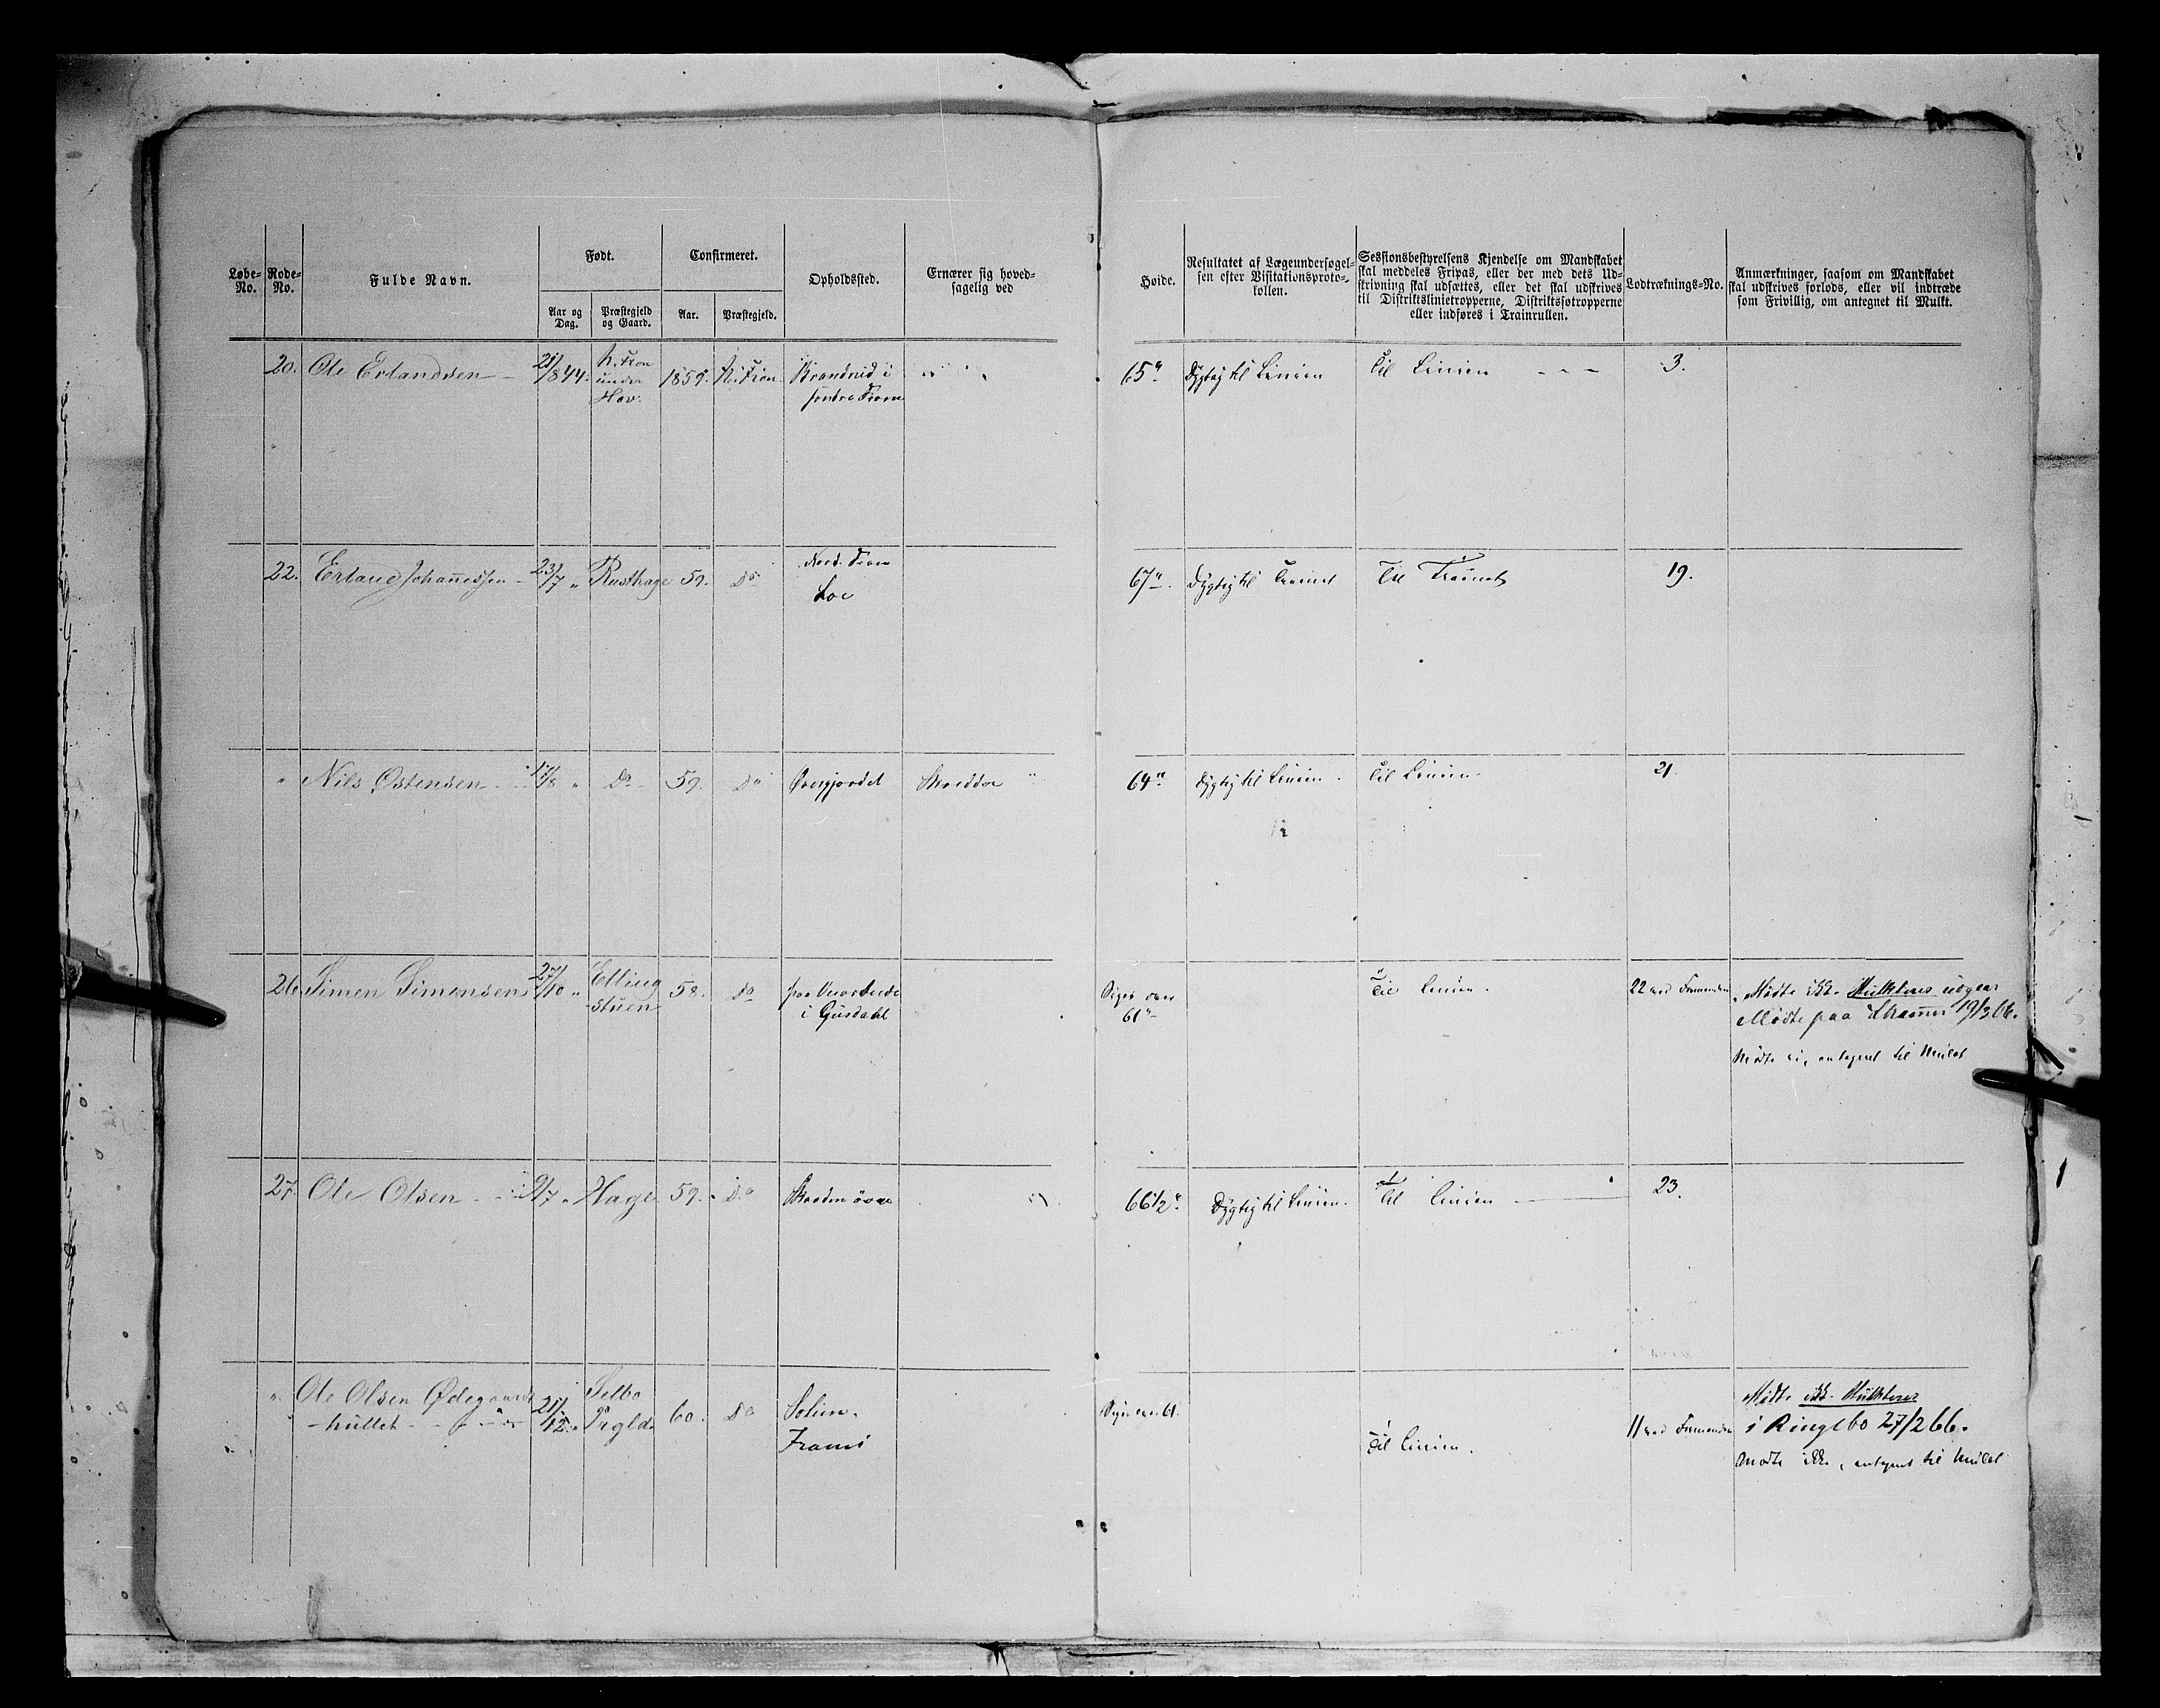 Løbe-No.
Rode-No.
Fulde Navn.
Født.
Aar og Dag.
Præstegjeld og Gaard.
Confirmeret.
Aar.
Præstegjeld.
Opholdssted.
Ernærer sig hoved-
sagelig ved
Høide.
Resultatet af Lægeundersøgel-
sen efter Visitationsproto-
kollen.
Sessionsbestyrelsens Kjendelse om Mandskabet
skal meddeles Fripas, eller der med dets Ud-
skrivning skal udsættes, eller det skal udskrives
til Distriktslinietropperne, Distriktssøtropperne
eller indføres i Trainrullen.
Lodtræknings-No.
Anmærkninger, saasom om Mandskabet
skal udskrives forlods, eller vil indtræde
som Frivillig, om antegnet til Mulkt.
20. Ole Erlandsen 21/1 844. N. Fron under Hov. 1859. N. Fron
søndre Fron
65" Dygtig til Linien Til Linien 3.
22. Erland Johannessen 23/7 " Rusthage 59. Do Nord. Fron
Loe
67" Dygtig til Trainet Til Trainet 19.
" Nils Østensen 17/8 " Do 59. Do Øvergjordet Skredder
64" Dygtig til Linien. Til Linien. 21.
26 Simen Simensen 27/10 " Elling-stuen 58. Do
i Gusdahl
Siges over
61"
Til Linien. 22 ved Formanden
Mødte ikke. Mulkteres
Mødte paa 19/3 66.
Mødte ei, antegnet til Mulct
27. Ole Olsen 9/7 " Hage 59. Do
66 1/2" Dygtig til Linien. Til Linien 23.
" Ole Olsen Ødegaards-
hullet 21/12 " Selbo Prgld. 60. Do
Siges over 61.
Til Linien.
11 ved Formanden
Mødte ikke. Mulkteres
i Ringebo 27/2 66.
Mødte ikke, antegnet til Mulct